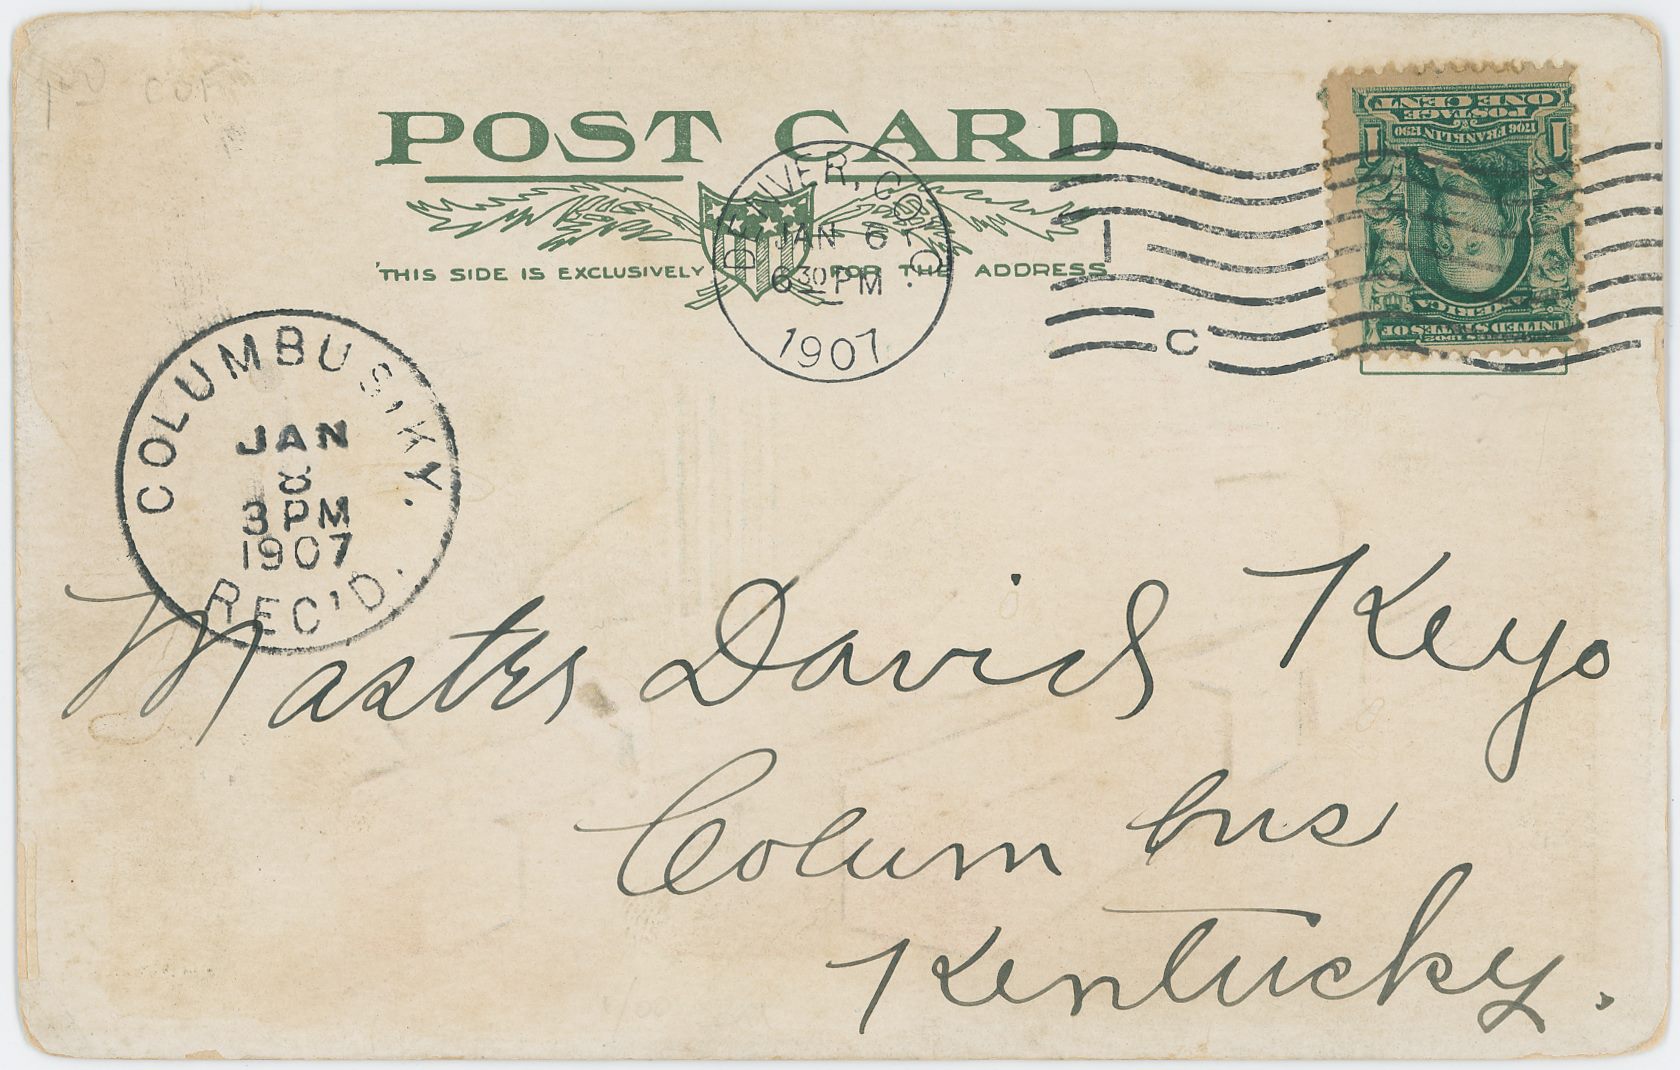 POST CARD
THIS SIDE IS EXCLUSIVELY FOR THE ADDRESS
DENVER, COLO.
JAN 6
6 30 PM
1907
1
C
ONE CENT
POSTAGE
1706 FRANKLIN 1790
1 1
UNITED STATES OF
AMERICA
SERIES 1902
COLUMBUS, KY.
JAN
8
3 PM
1907
REC'D.
Master David Keyo
Columbus
Kentucky.